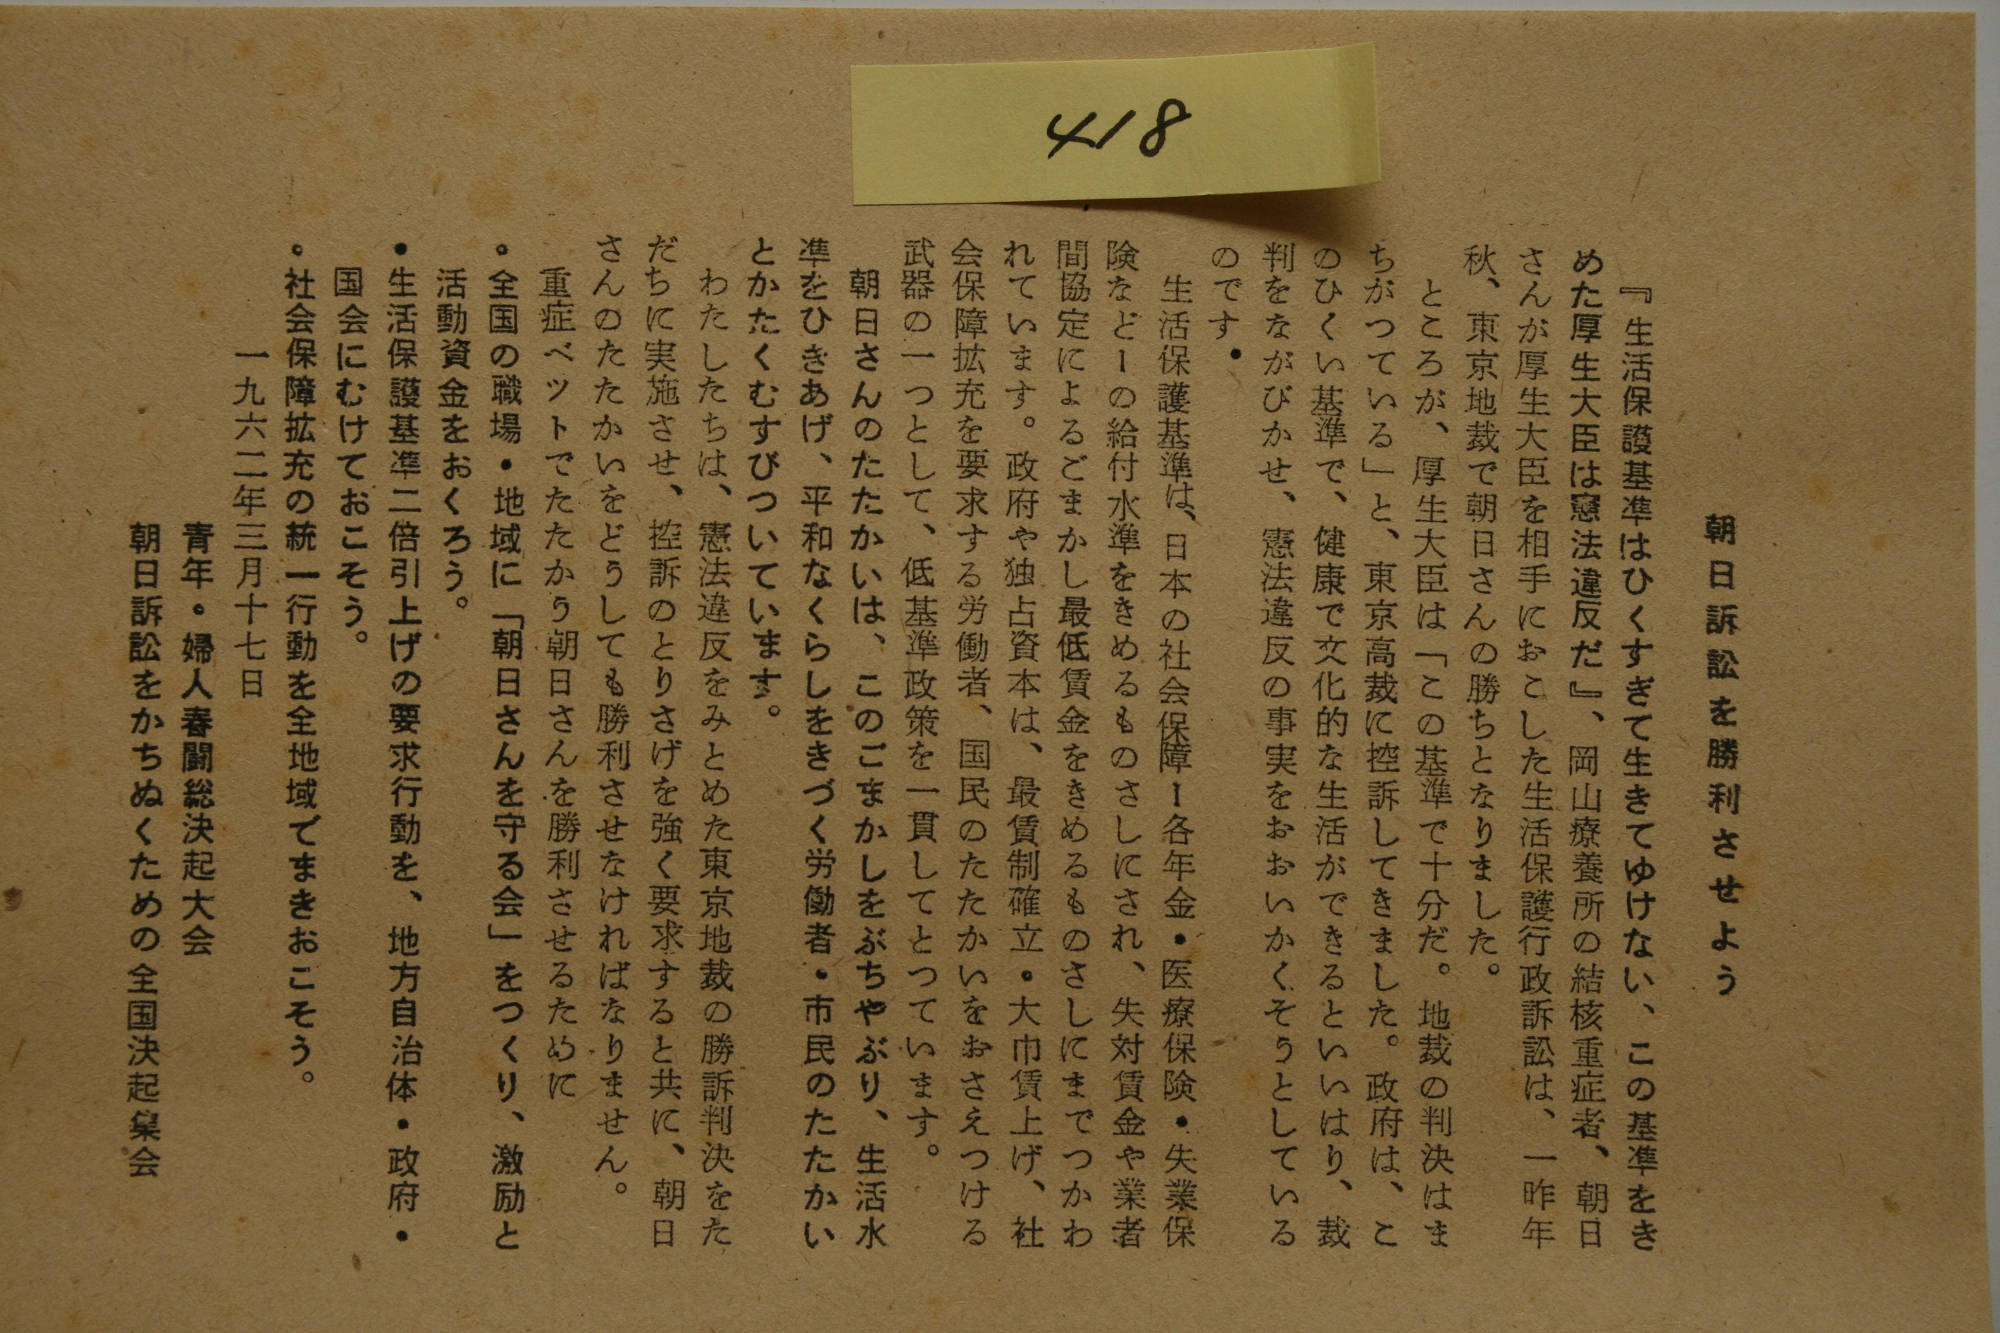 418
朝日訴訟を勝利させよう
『生活保護基準はひくすぎて生きてゆけない、この基準をき
めた厚生大臣は憲法違反だ』、岡山療養所の結核重症者、朝日
さんが厚生大臣を相手におこした生活保護行政訴訟は、一昨年
秋、東京地裁で朝日さんの勝ちとなりました。
ところが、厚生大臣は「この基準で十分だ。地裁の判決はま
ちがつている」と、東京高裁に控訴してきました。政府は、こ
のひくい基準で、健康で文化的な生活ができるといいはり、裁
判をながびかせ、憲法違反の事実をおおいかくそうとしている
のです・
生活保護基準は、日本の社会保障ー各年金・医療保険・失業保
険などーの給付水準をきめるものさしにされ、失対賃金や業者
間協定によるごまかし最低賃金をきめるものさしにまでつかわ
れています。政府や独占資本は、最賃制確立・大巾賃上げ、社
会保障拡充を要求する労働者、国民のたたかいをおさえつける
武器の一つとして、低基準政策を一貫してとつています。
朝日さんのたたかいは、このごまかしをぶちやぶり、生活水
準をひきあげ、平和なくらしをきづく労働者・市民のたたかい
とかたくむすびついています。
わたしたちは、憲法違反をみとめた東京地裁の勝訴判決をた
だちに実施させ、控訴のとりさげを強く要求すると共に、朝日
さんのたたかいをどうしても勝利させなければなりません。
重症ベットでたたかう朝日さんを勝利させるために
・全国の職場・地域に「朝日さんを守る会」をつくり、激励と
活動資金をおくろう。
・生活保護基準二倍引上げの要求行動を、地方自治体・政府・
国会にむけておこそう。
・社会保障拡充の統一行動を全地域でまきおこそう。
一九六二年三月十七日
青年・婦人春闘総決起大会
朝日訴訟をかちぬくための全国決起集会